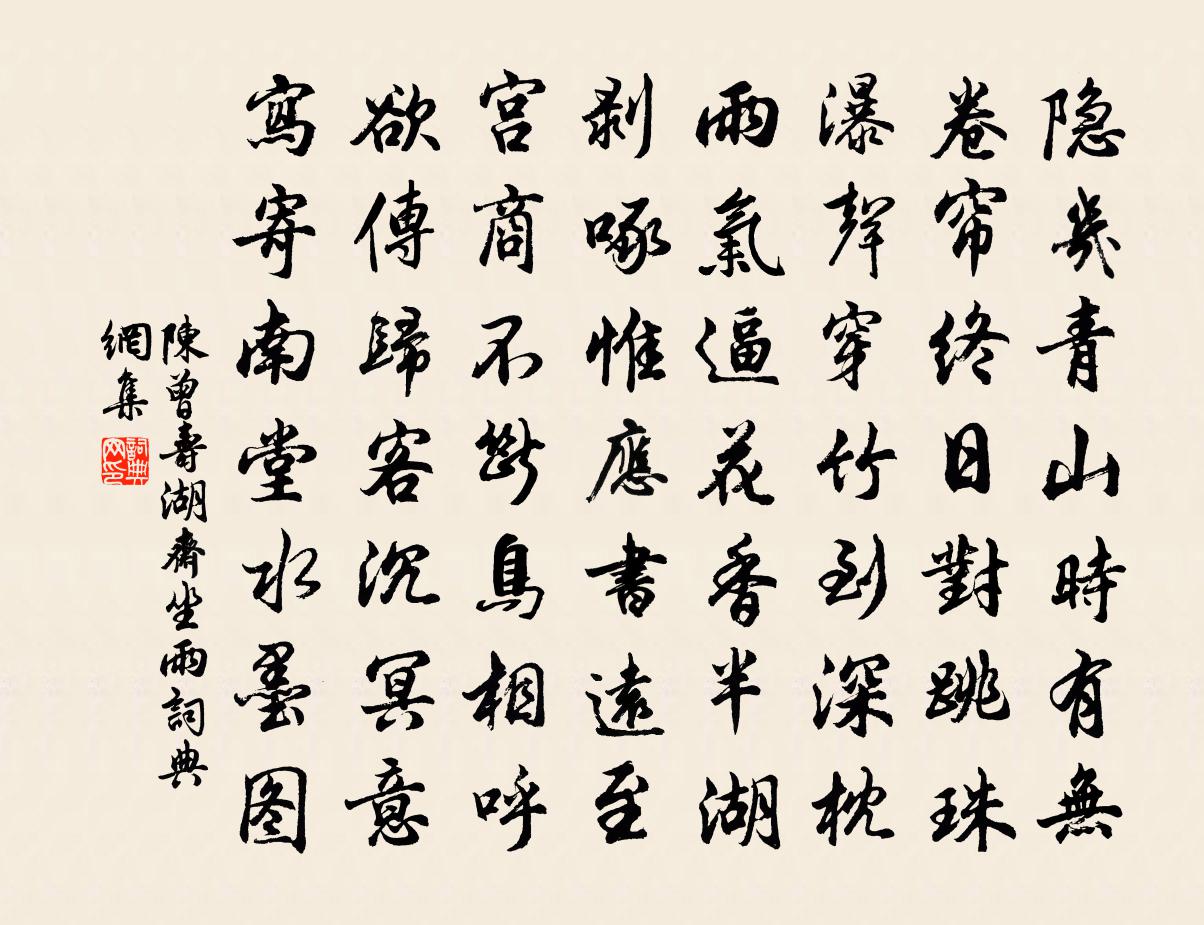 隐几青山時有無
卷帘終日對跳珠
瀑聲穿竹到深枕
雨氣逼花香半湖
剥啄惟應書遠至
宫商不斷鳥相呼
欲傳歸客沉冥意
寫寄南堂水墨图
陳曾壽湖齋坐雨詞典
網集
詞典
网印